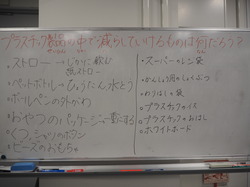 プラスチック製品の中で減らしていけるものは何だろう?
・ストロー → じかに飲む
紙ストロー
・ペットボトル → ひょうたん水とう
・ボールペンの外がわ
・おやつのパッケージ → 
・くつ、ふくのボタン
・ビーズのおもちゃ
・スーパーのレジ袋
・プラスチックのイス
・プラスチックのおはし
・ホワイトボード